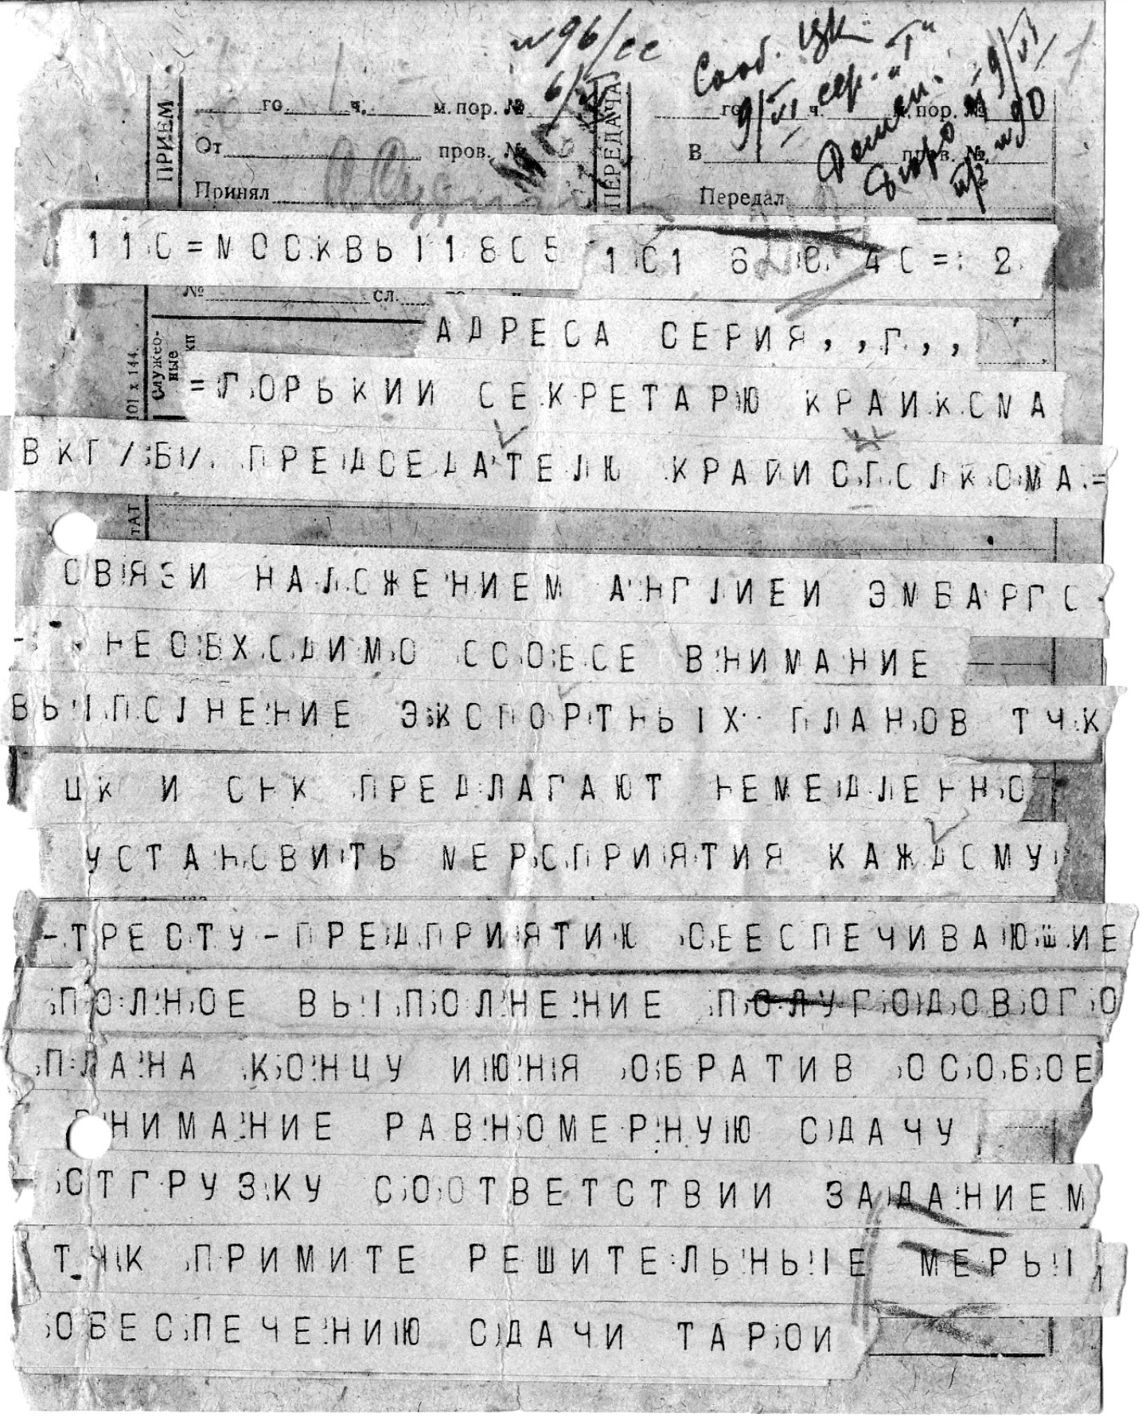 №96/сс
Сооб. ЦК
9/VI сер. "Г"
№90
ПРИЕМ
го ч. м. пор. №
От пров. №
Принял
ПЕРЕДАЧА
го ч. м. пор. №
В пров. №
Передал
110=МОСКВЫ 1805 101 6 0 40=: 2
№ сл.
АДРЕСА СЕРИЯ,,Г,,
Служеб-
ные
=ГОРЬКИИ СЕКРЕТАРЮ КРАИКОМА
101 x 144
ВКП/Б/ ПРЕДСЕДАТЕЛЮ КРАЙИСПОЛКОМА=
ТАТ
СВЯЗИ НАЛОЖЕНИЕМ АНГЛИЕИ ЭМБАРГО
- НЕОБХОДИМО ОСОБОЕ ВНИМАНИЕ
ВЫПОЛНЕНИЕ ЭКСПОРТНЫХ ПЛАНОВ ТЧК
ЦК И СНК ПРЕДЛАГАЮТ НЕМЕДЛЕННО
УСТАНОВИТЬ МЕРОПРИЯТИЯ КАЖДОМУ
-ТРЕСТУ-ПРЕДПРИЯТИЮ ОБЕСПЕЧИВАЮШИЕ
ПОЛНОЕ ВЫПОЛНЕНИЕ ПОЛУГОДОВОГО
ПЛАНА КОНЦУ ИЮНЯ ОБРАТИВ ОСОБОЕ
ВНИМАНИЕ РАВНОМЕРНУЮ СДАЧУ
ОТГРУЗКУ СООТВЕТСТВИИ ЗАДАНИЕМ
ТЧК ПРИМИТЕ РЕШИТЕЛЬНЫЕ МЕРЫ
ОБЕСПЕЧЕНИЮ СДАЧИ ТАРОИ